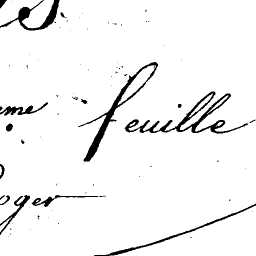 eme feuille
oger